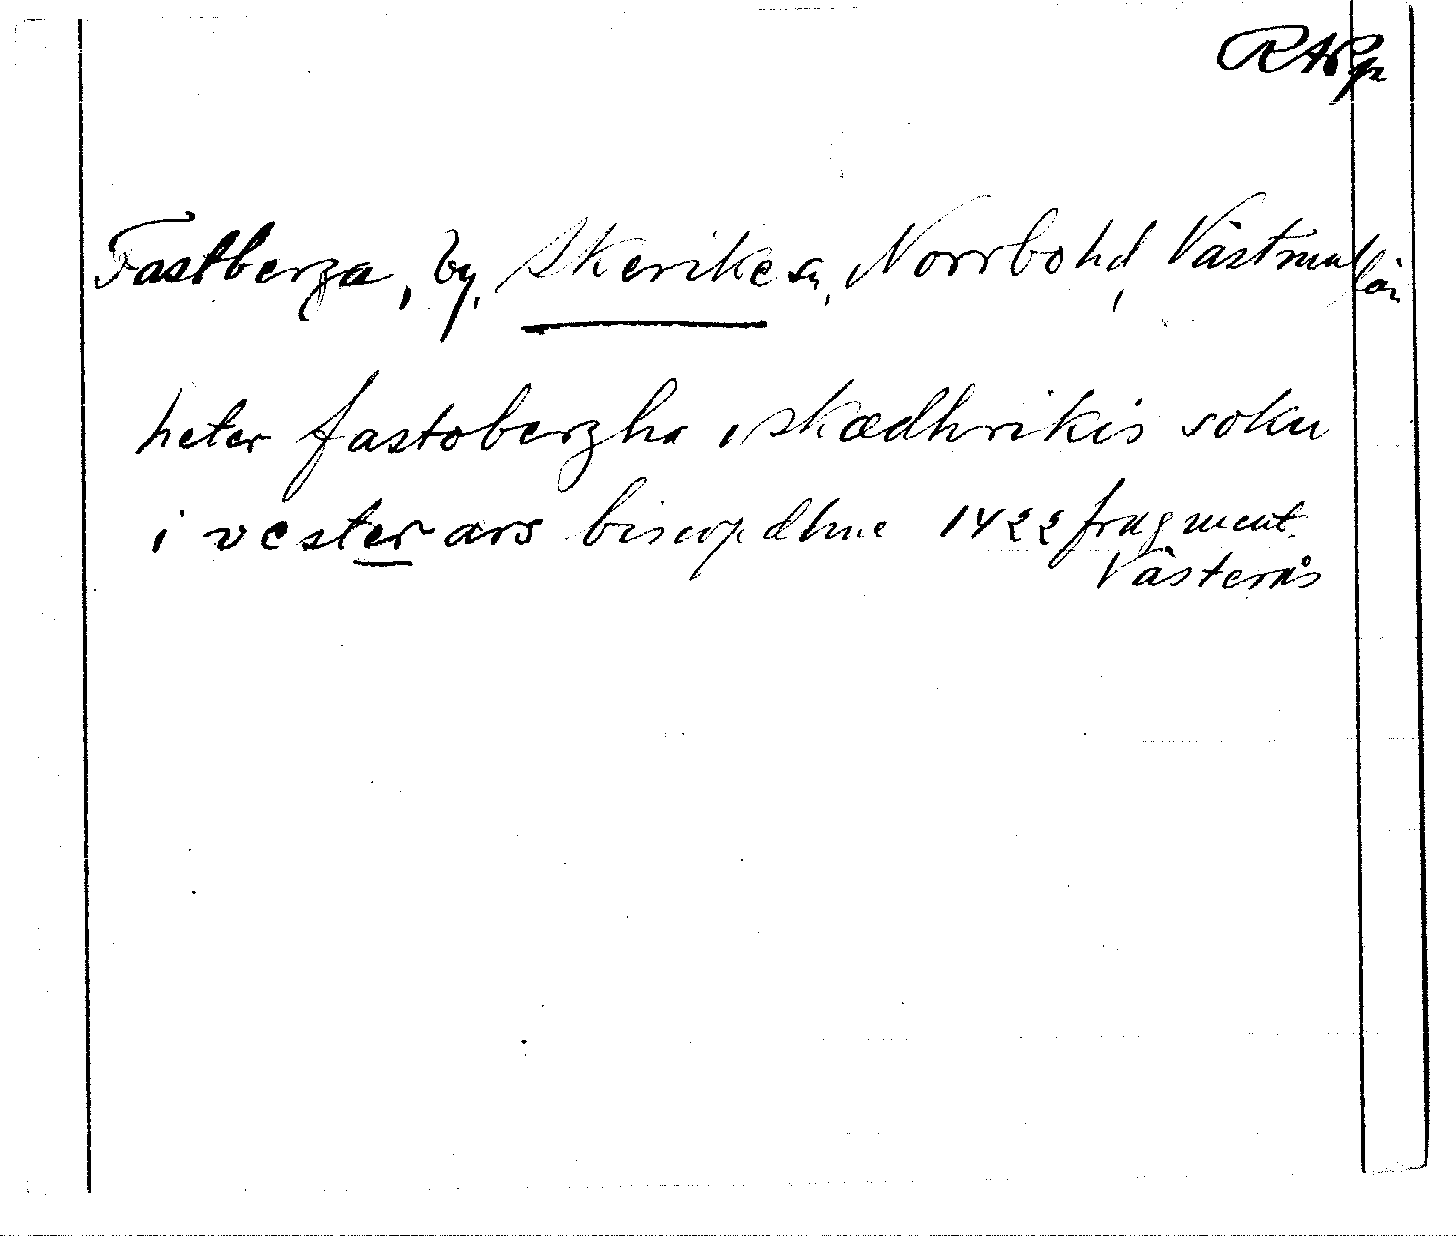 RAp
Fastberga, by, Skerike sn, Norrbo hd, Västmanl län
heter fastobergha i skædhrikis sokn
i vesterars biscopdhme 1422 fragment
Västerås